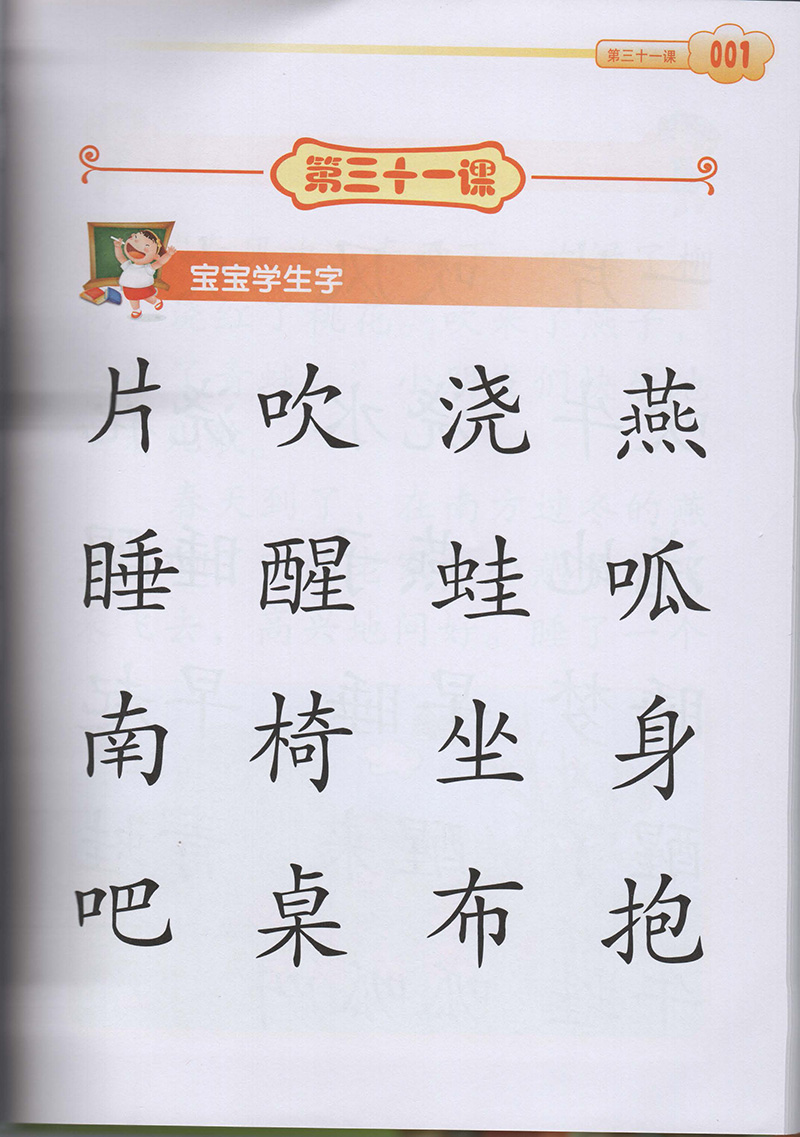 第三十一课 001
第三十一课
宝宝学生字
片 吹 浇 燕
睡 醒 蛙 呱
南 椅 坐 身
吧 桌 布 抱